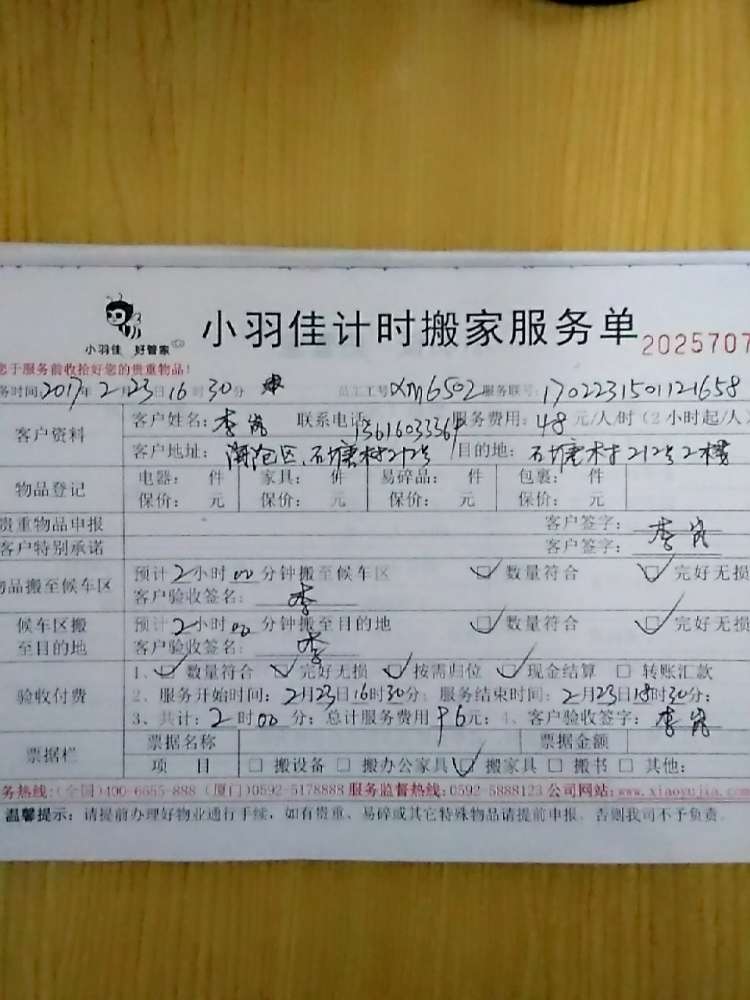 小羽佳 好管家
小羽佳计时搬家服务单 2025707
您于服务前收拾好您的贵重物品!
务时间:2017年2月23日16时30分 员工工号XM6502服务联号:1702231501121658
客户资料 客户姓名:李 联系电话: 服务费用:48元/人/时(2小时起/人)
客户地址: 石塘村212号 目的地: 石塘村212号2楼
物品登记 电器: 件 家具: 件 易碎品: 件 包裹: 件
保价: 元 保价: 元 保价: 元 保价: 元
贵重物品申报 客户签字: 李
客户特别承诺 客户签字:
物品搬至候车区 预计2小时00分钟搬至候车区 数量符合 完好无损
客户验收签名: 李
候车区搬至目的地 预计2小时00分钟搬至目的地 数量符合 完好无损
客户验收签名: 李
验收付费 1、数量符合 完好无损 按需归位 现金结算 转账汇款
2、服务开始时间:2月23日16时30分;服务结束时间:2月23日18时30分;
3、共计:2时00分;总计服务费用96元;4、客户验收签字:李
票据栏 票据名称 票据金额
项 目 搬设备 搬办公家具 搬家具 搬书 其他:
务热线:(全国)400-6655-888 (厦门)0592-5178888 服务监督热线:0592-5888123 公司网站:www.xiaoyujia.com
温馨提示:请提前办理好物业通行手续,如有贵重、易碎或其它特殊物品请提前申报、否则我司不予负责